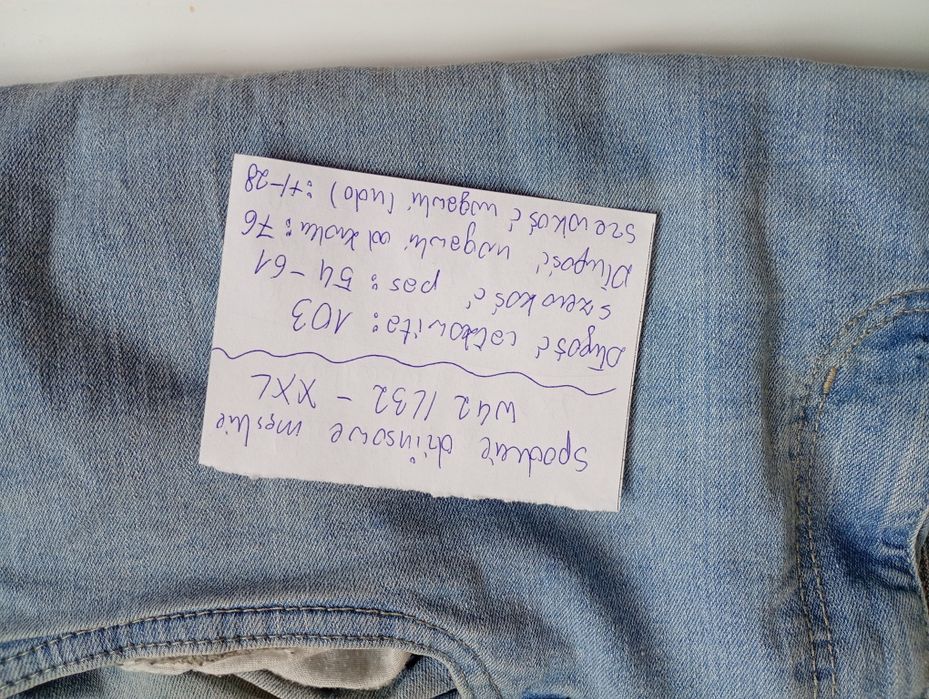 Spodnie dżinsowe męskie
W42/L32 - XXL
Długość całkowita: 103
szerokość pas: 54-61
Długość nogawki od kroku: 76
szerokość nogawki (udo): +/-28